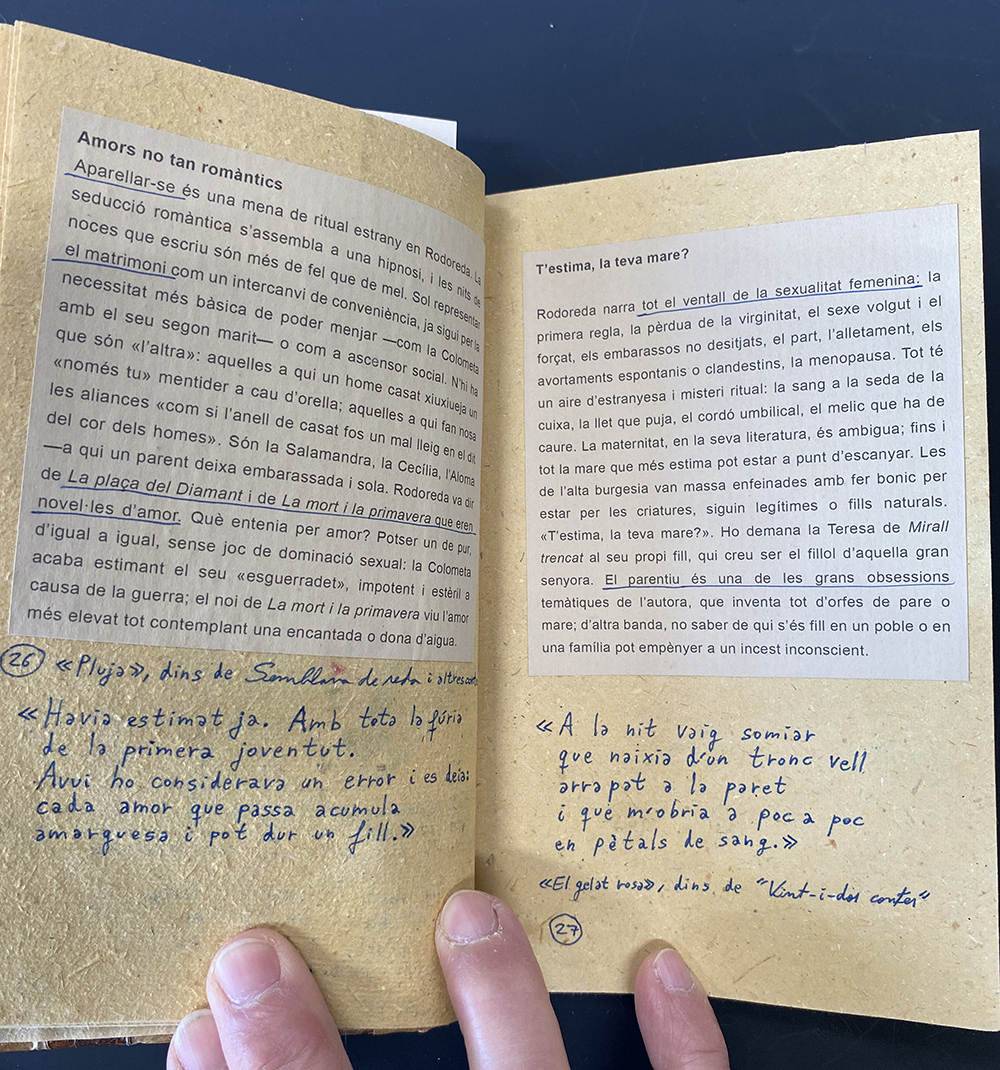 Amors no tan romàntics
Aparellar-se és una mena de ritual estrany en Rodoreda. La
seducció romàntica s'assembla a una hipnosi, i les nits de
noces que escriu són més de fel que de mel. Sol representar
el matrimoni com un intercanvi de conveniència, ja sigui per la
necessitat més bàsica de poder menjar —com la Colometa
amb el seu segon marit— o com a ascensor social. N'hi ha
que són «l'altra»: aquelles a qui un home casat xiuxiueja un
«només tu» mentider a cau d'orella; aquelles a qui fan nosa
les aliances «com si l'anell de casat fos un mal lleig en el dit
del cor dels homes». Són la Salamandra, la Cecília, l'Aloma
—a qui un parent deixa embarassada i sola. Rodoreda va dir
de La plaça del Diamant i de La mort i la primavera que eren
novel·les d'amor. Què entenia per amor? Potser un de pur,
d'igual a igual, sense joc de dominació sexual: la Colometa
acaba estimant el seu «esguerradet», impotent i estèril a
causa de la guerra; el noi de La mort i la primavera viu l'amor
més elevat tot contemplant una encantada o dona d'aigua.
26 «Pluja», dins de Semblava de seda i altres contes
«Havia estimat ja. Amb tota la fúria
de la primera joventut.
Avui ho considerava un error i es deia:
cada amor que passa acumula
amarguesa i pot dur un fill.»
T'estima, la teva mare?
Rodoreda narra tot el ventall de la sexualitat femenina: la
primera regla, la pèrdua de la virginitat, el sexe volgut i el
forçat, els embarassos no desitjats, el part, l'alletament, els
avortaments espontanis o clandestins, la menopausa. Tot té
un aire d'estranyesa i misteri ritual: la sang a la seda de la
cuixa, la llet que puja, el cordó umbilical, el melic que ha de
caure. La maternitat, en la seva literatura, és ambigua; fins i
tot la mare que més estima pot estar a punt d'escanyar. Les
de l'alta burgesia van massa enfeinades amb fer bonic per
estar per les criatures, siguin legítimes o fills naturals.
«T'estima, la teva mare?». Ho demana la Teresa de Mirall
trencat al seu propi fill, qui creu ser el fillol d'aquella gran
senyora. El parentiu és una de les grans obsessions
temàtiques de l'autora, que inventa tot d'orfes de pare o
mare; d'altra banda, no saber de qui s'és fill en un poble o en
una família pot empènyer a un incest inconscient.
«A la nit vaig somiar
que naixia d'un tronc vell
arrapat a la paret
i que m'obria a poc a poc
en pètals de sang.»
«El gelat rosa», dins de "Vint-i-dos contes"
27